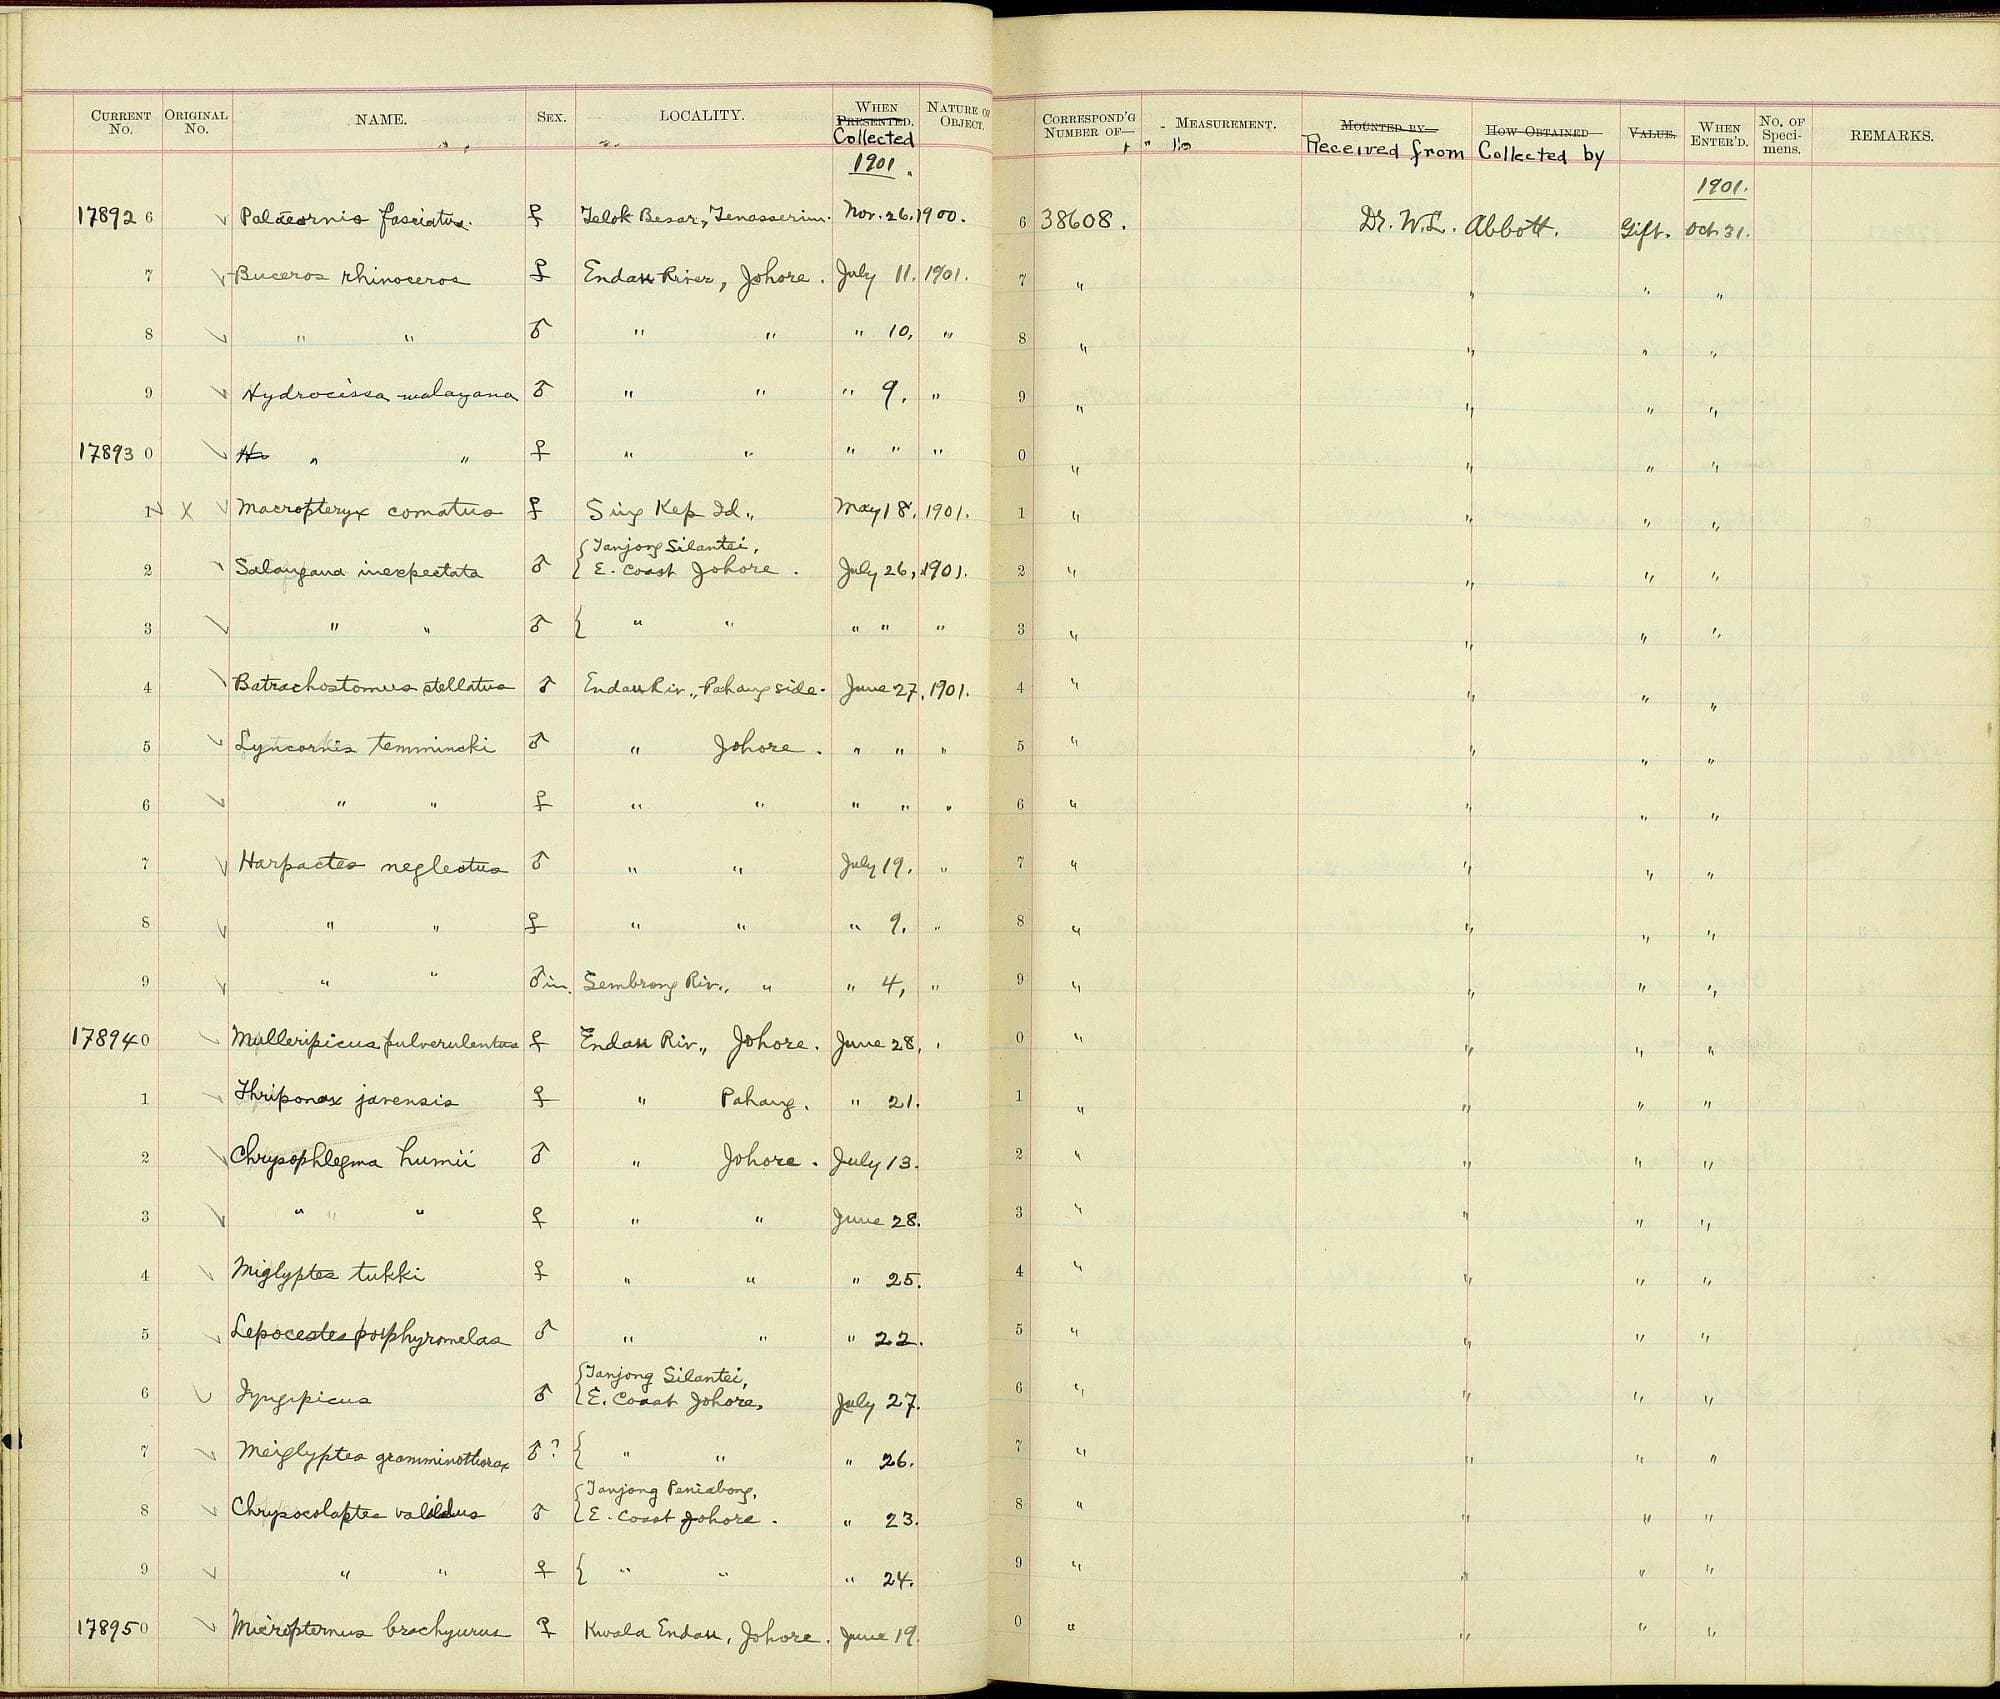 CURRENT No. ORIGINAL No. NAME. SEX. LOCALITY. WHEN PRESENTED. Collected NATURE OF OBJECT. CORRESPOND'G NUMBER OF— MEASUREMENT. MOUNTED BY— Received from HOW OBTAINED— Collected by VALUE. WHEN ENTER'D. No. OF Speci- mens. REMARKS.
1901 1901.
178926 Palaeornis fasciatus. ♀ Telok Besar, Tenasserim. Nov. 26. 1900. 6 38608. Dr. W. L. Abbott. Gift. Oct. 31.
7 Buceros rhinoceros ♀ Endau River, Johore. July 11. 1901. 7 " " " "
8 " " ♂ " " " 10, " 8 " " " "
9 Hydrocissa malayana ♂ " " " 9, " 9 " " " "
178930 H " " ♀ " " " " " 0 " " " "
1 X Macropteryx comatus ♀ Sing Kep Id., May 18, 1901. 1 " " " "
2 Salangana inexpectata ♂ { Tanjong Silantei, E. Coast Johore. July 26, 1901. 2 " " " "
3 " " ♂ { " " " " " 3 " " " "
4 Batrachostomus stellatus ♂ Endau Riv., Pahang side. June 27, 1901. 4 " " " "
5 Lyncornis temmincki ♂ " Johore. " " " 5 " " " "
6 " " ♀ " " " " " 6 " " " "
7 Harpactes neglectus ♂ " " July 19. " 7 " " " "
8 " " ♀ " " " 9. " 8 " " " "
9 " " ♂ im. Sembrong Riv., " " 4, " 9 " " " "
178940 Mulleripicus pulverulentus ♀ Endau Riv., Johore. June 28, " 0 " " " "
1 Thriponax javensis ♀ " Pahang. " 21. 1 " " " "
2 Chrysophlegma humii ♂ " Johore. July 13. 2 " " " "
3 " " " ♀ " " June 28. 3 " " " "
4 Miglyptes tukki ♀ " " " 25. 4 " " " "
5 Lepocestes porphyromelas ♂ " " " 22. 5 " " " "
6 Iyngipicus ♂ { Tanjong Silantei, E. Coast Johore, July 27. 6 " " " "
7 Meiglyptes gramminothorax ♂? { " " " 26. 7 " " " "
8 Chrysocolaptes validus ♂ { Tanjong Peniabong, E. Coast Johore. " 23. 8 " " " "
9 " " ♀ { " " " 24. 9 " " " "
178950 Micropternus brachyurus ♀ Kwala Endau, Johore. June 19. 0 " " " "